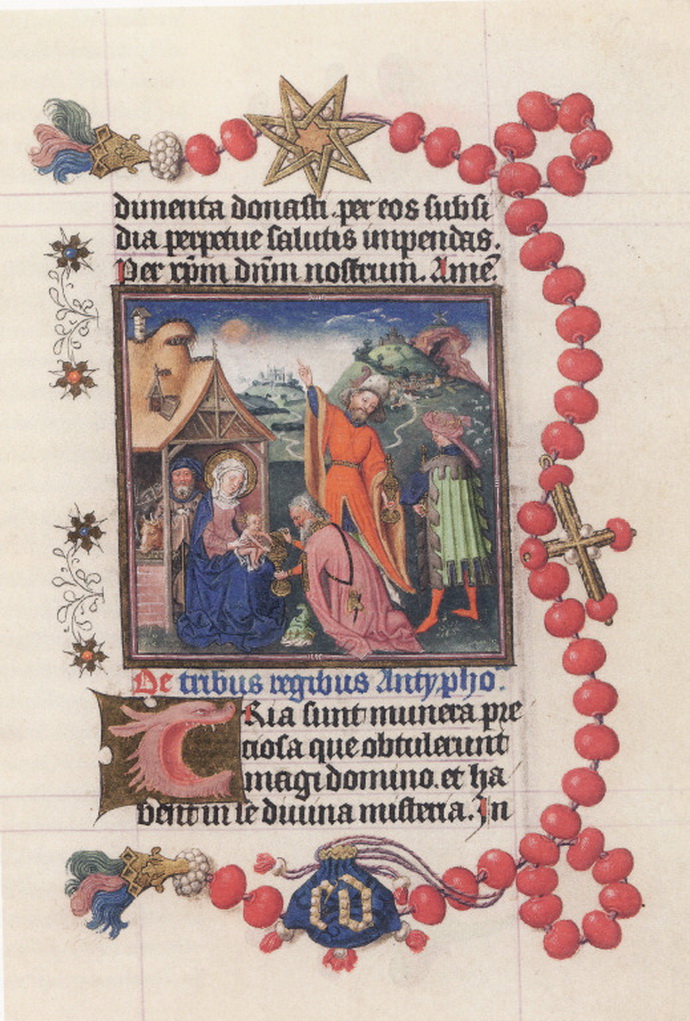 dumenta donasti. per eos subsi
dia perpetue salutis impendas.
Per xp̄m dn̄m nostrum. Amē.
De tribus regibus Antypho.
TRia sunt munera pre
ciosa que obtulerunt
magi domino. et ha
bent in se divina misteria. In
ED